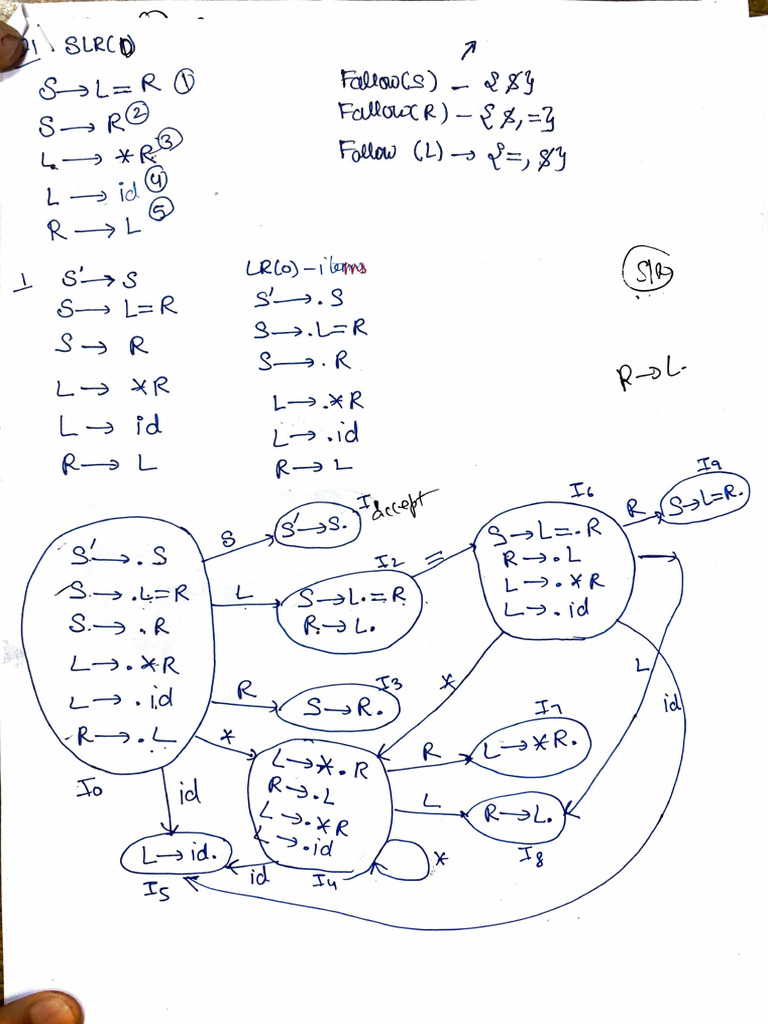 Q1. SLR(1)
S→L=R ①
S→R ②
L→*R ③
L→id ④
R→L ⑤
Fallow(S) – {$}
Fallow(R) – {$,=}
Fallow (L) → {=,$}
1 S'→S
S→ L=R
S→ R
L→ *R
L→ id
R→ L
LR(0)-items
S'→.S
S→.L=R
S→.R
L→.*R
L→.id
R→L
S/R
R→L.
S'→.S
S→.L=R
S.→.R
L→.*R
L→.id
R→.L
I0
S
S'→S.
I
accept
L
I2
S→L.=R
R.→L.
=
I6
S→L=.R
R→.L
L→.*R
L→.id
R
I9
S→L=R.
R
I3
S→R.
*
L→*.R
R→.L
L→.*R
L→.id
I4
*
*
R
I7
L→*R.
L
R→L.
I8
L
id
id
L→id.
I5
id